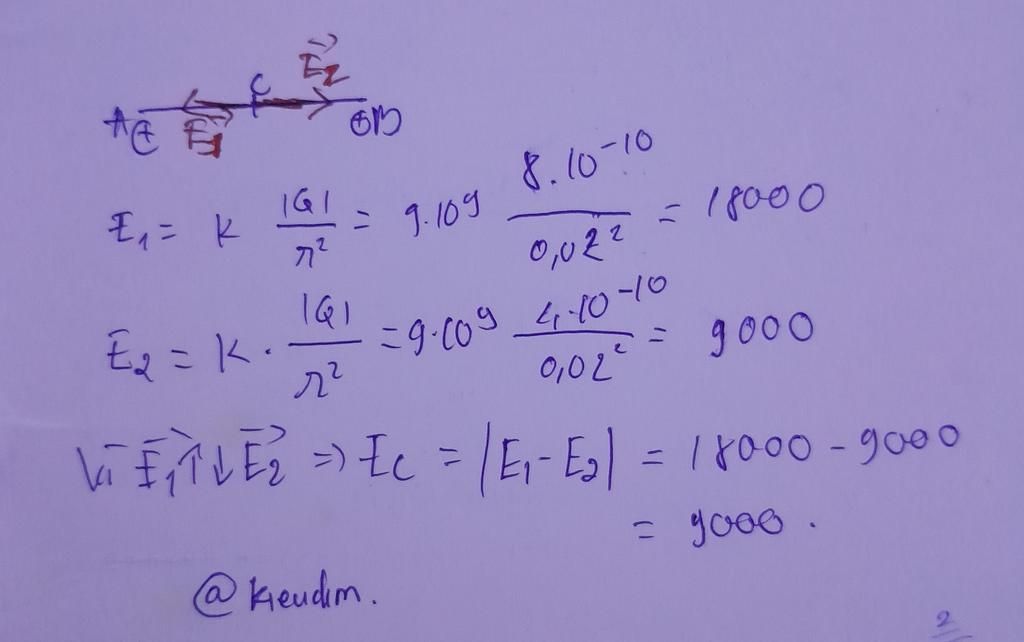 C E⃗₂
A ⊕ E⃗₁ ⊕ B
E₁ = k |Q|/r² = 9.10⁹ 8.10⁻¹⁰/0,02² = 18000
E₂ = k . |Q|/r² = 9.10⁹ 4.10⁻¹⁰/0,02² = 9000
Vì E⃗₁ ↑↓ E⃗₂ => Ec = |E₁ - E₂| = 18000 - 9000
= 9000 .
2